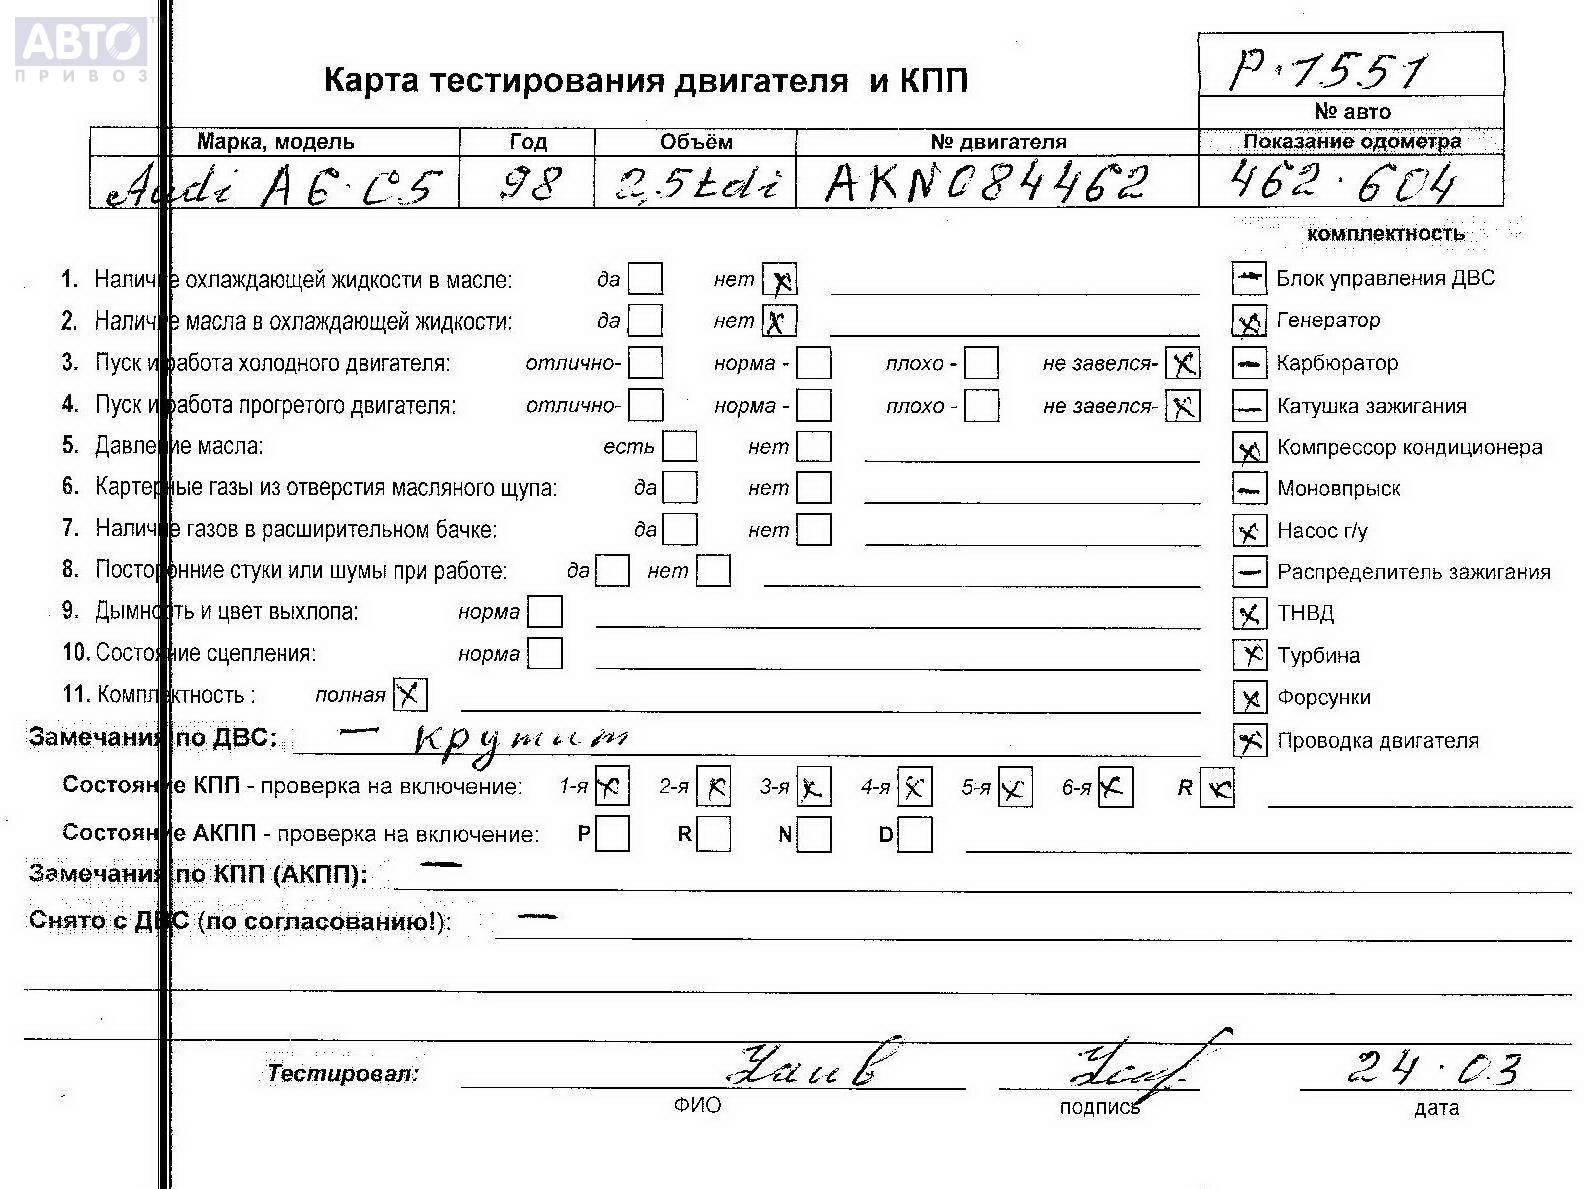 АВТО
ПРИВОЗ
Р.1551
Карта тестирования двигателя и КПП
№ авто
Марка, модель Год Объём № двигателя Показание одометра
Audi A6 C5 98 2,5tdi AKN084462 462.604
комплектность
1. Наличие охлаждающей жидкости в масле: да нет x
2. Наличие масла в охлаждающей жидкости: да нет x
3. Пуск и работа холодного двигателя: отлично- норма - плохо - не завелся- x
4. Пуск и работа прогретого двигателя: отлично- норма - плохо - не завелся- x
5. Давление масла: есть нет
6. Картерные газы из отверстия масляного щупа: да нет
7. Наличие газов в расширительном бачке: да нет
8. Посторонние стуки или шумы при работе: да нет
9. Дымность и цвет выхлопа: норма
10. Состояние сцепления: норма
11. Комплектность : полная x
— Блок управления ДВС
x Генератор
— Карбюратор
— Катушка зажигания
x Компрессор кондиционера
— Моновпрыск
x Насос г/у
— Распределитель зажигания
x ТНВД
x Турбина
x Форсунки
x Проводка двигателя
Замечания по ДВС: — крутит
Состояние КПП - проверка на включение: 1-я x 2-я x 3-я x 4-я x 5-я x 6-я x R x
Состояние АКПП - проверка на включение: P R N D
Замечания по КПП (АКПП): —
Снято с ДВС (по согласованию!): —
Тестировал: 24.03
ФИО подпись дата